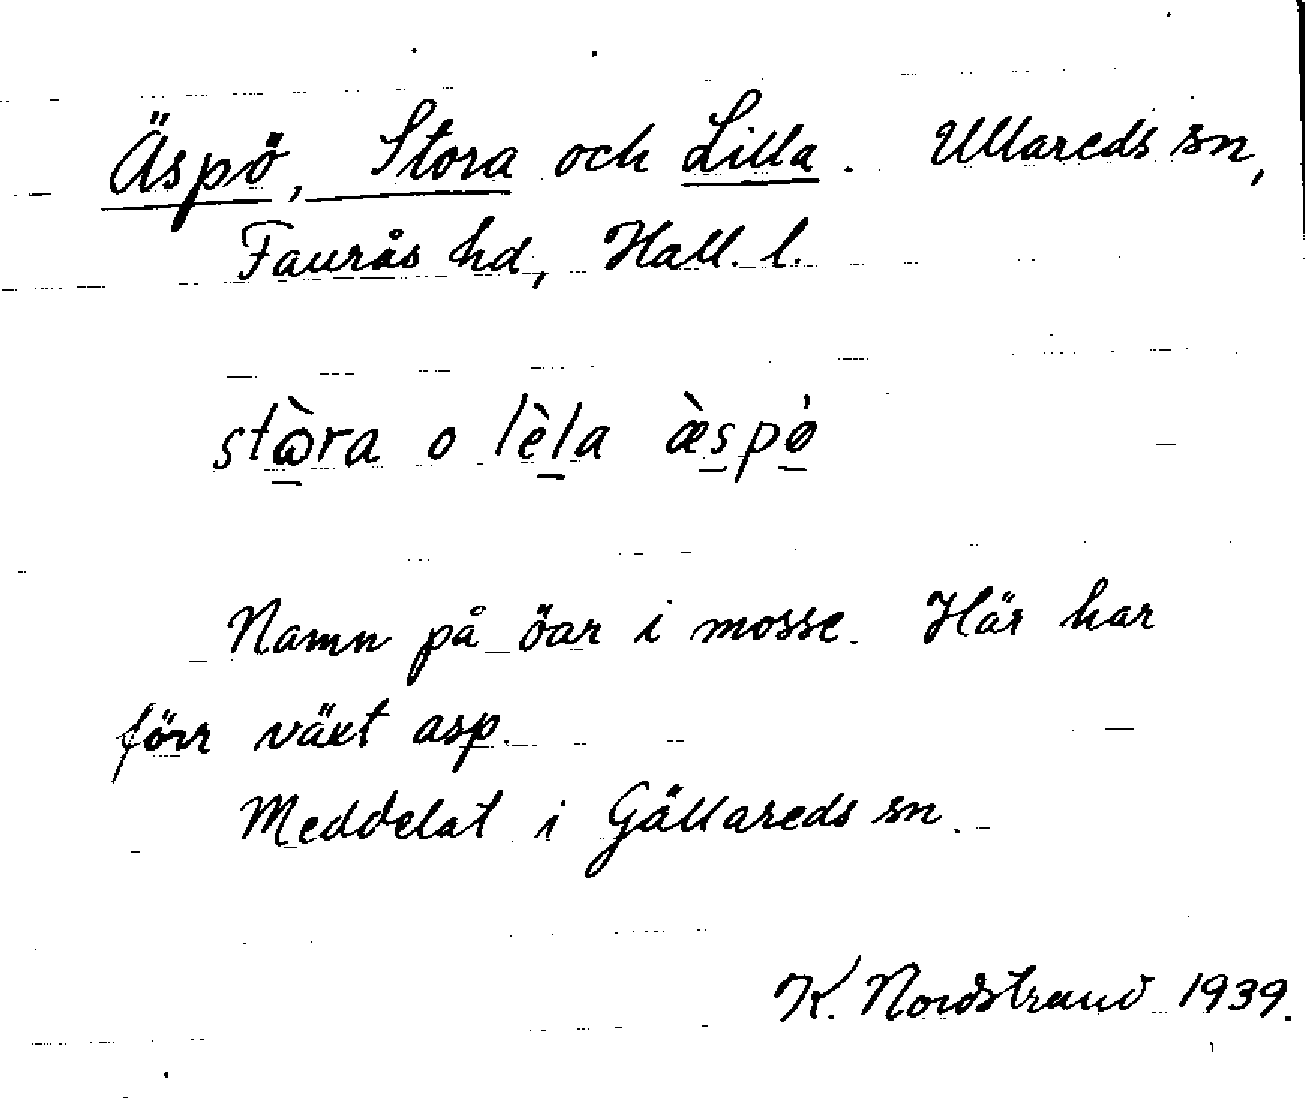 Äspö, Stora och Lilla. Ullareds sn,
Faurås hd, Hall. l.
stɷ̀ra o lèla æ̀spǿ
Namn på öar i mosse. Här har
förr växt asp.
Meddelat i Gällareds sn.
K. Nordstrand 1939.